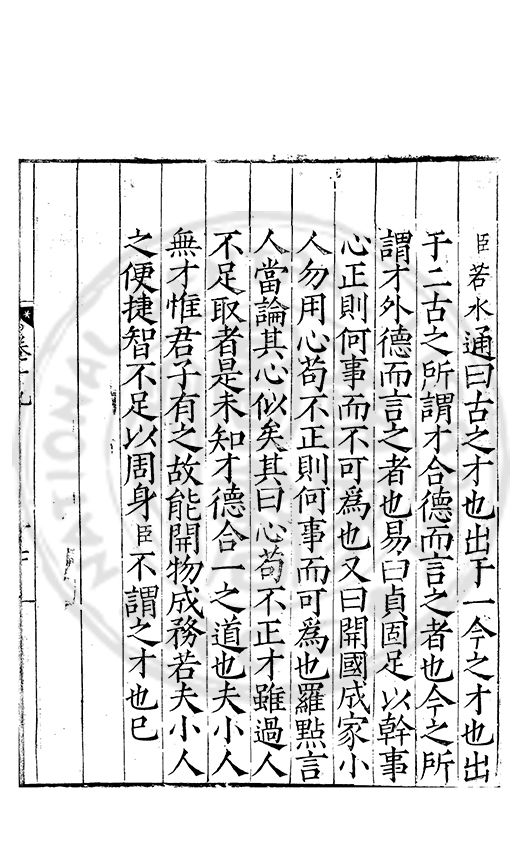 臣若水通曰古之才也出于一今之才也出
于二古之所謂才合德而言之者也今之所
謂才外德而言之者也易曰貞固足以幹事
心正則何事而不可為也又曰開國成家小
人勿用心苟不正則何事而可為也羅點言
人當論其心似矣其曰心苟不正才雖過人
不足取者是未知才德合一之道也夫小人
無才惟君子有之故能開物成務若夫小人
之便捷智不足以周身臣不謂之才也已